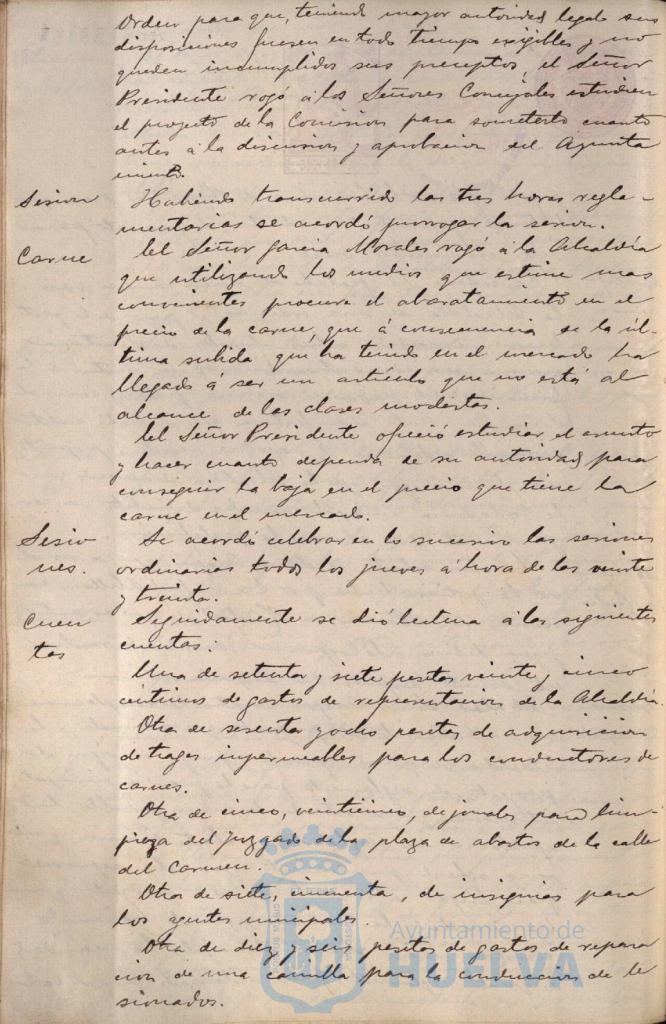 Orden para que, teniendo mayor autoridad legal sus
disposiciones fuesen en todo tiempo exigibles y no
queden incumplidos sus preceptos, el Señor
Presidente rogó á los Señores Concejales estudien
el proyecto de la Comision para someterlo cuanto
antes á la discusion y aprobacion del Ayunta
miento.
Sesion
Habiendo transcurrido las tres horas regla-
mentarias se acordó prorrogar la sesion.
Carne
El Señor Garcia Morales rogó á la Alcaldía
que utilizando los medios que estime mas
convenientes procure el abaratamiento en el
precio de la carne, que á consecuencia de la úl-
tima subida que ha tenido en el mercado ha
llegado á ser un artículo que no está al
alcance de las clases modestas.
El Señor Presidente ofreció estudiar el asunto
y hacer cuanto dependa de su autoridad para
conseguir la baja en el precio que tiene la
carne en el mercado.
Sesio
nes.
Se acordó celebrar en lo sucesivo las sesiones
ordinarias todos los jueves á hora de las veinte
y treinta.
Cuen
tas
Seguidamente se dió lectura á las siguientes
cuentas:
Una de setenta y siete pesetas veinte y cinco
céntimos de gastos de representacion de la Alcaldía.
Otra de sesenta y ocho pesetas de adquisicion
de trages impermeables para los conductores de
carnes.
Otra de cinco, veinticinco, de jornales para lim-
pieza del Juzgado de la plaza de abastos de la calle
del Carmen.
Otra de siete, cincuenta, de insignias para
los agentes municipales.
Otra de diez y seis pesetas de gastos de repara
cion de una camilla para la conduccion de le
sionados.
Ayuntamiento de
HUELVA